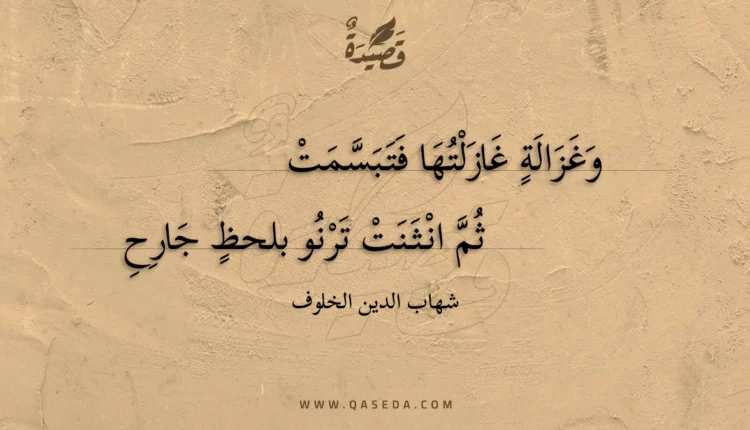 قَصِيْدَةٌ
وَغَزَالَةٍ غَازَلْتُهَا فَتَبَسَّمَتْ
ثُمَّ انْثَنَتْ تَرْنُو بلحظٍ جَارِحِ
شهاب الدين الخلوف
WWW.QASEDA.COM